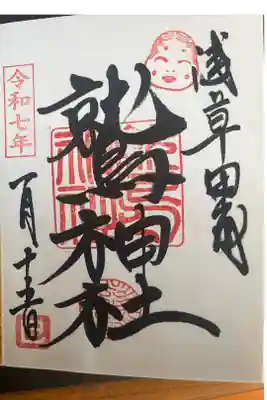 浅草田甫
鷲神社
令和七年
一月十日